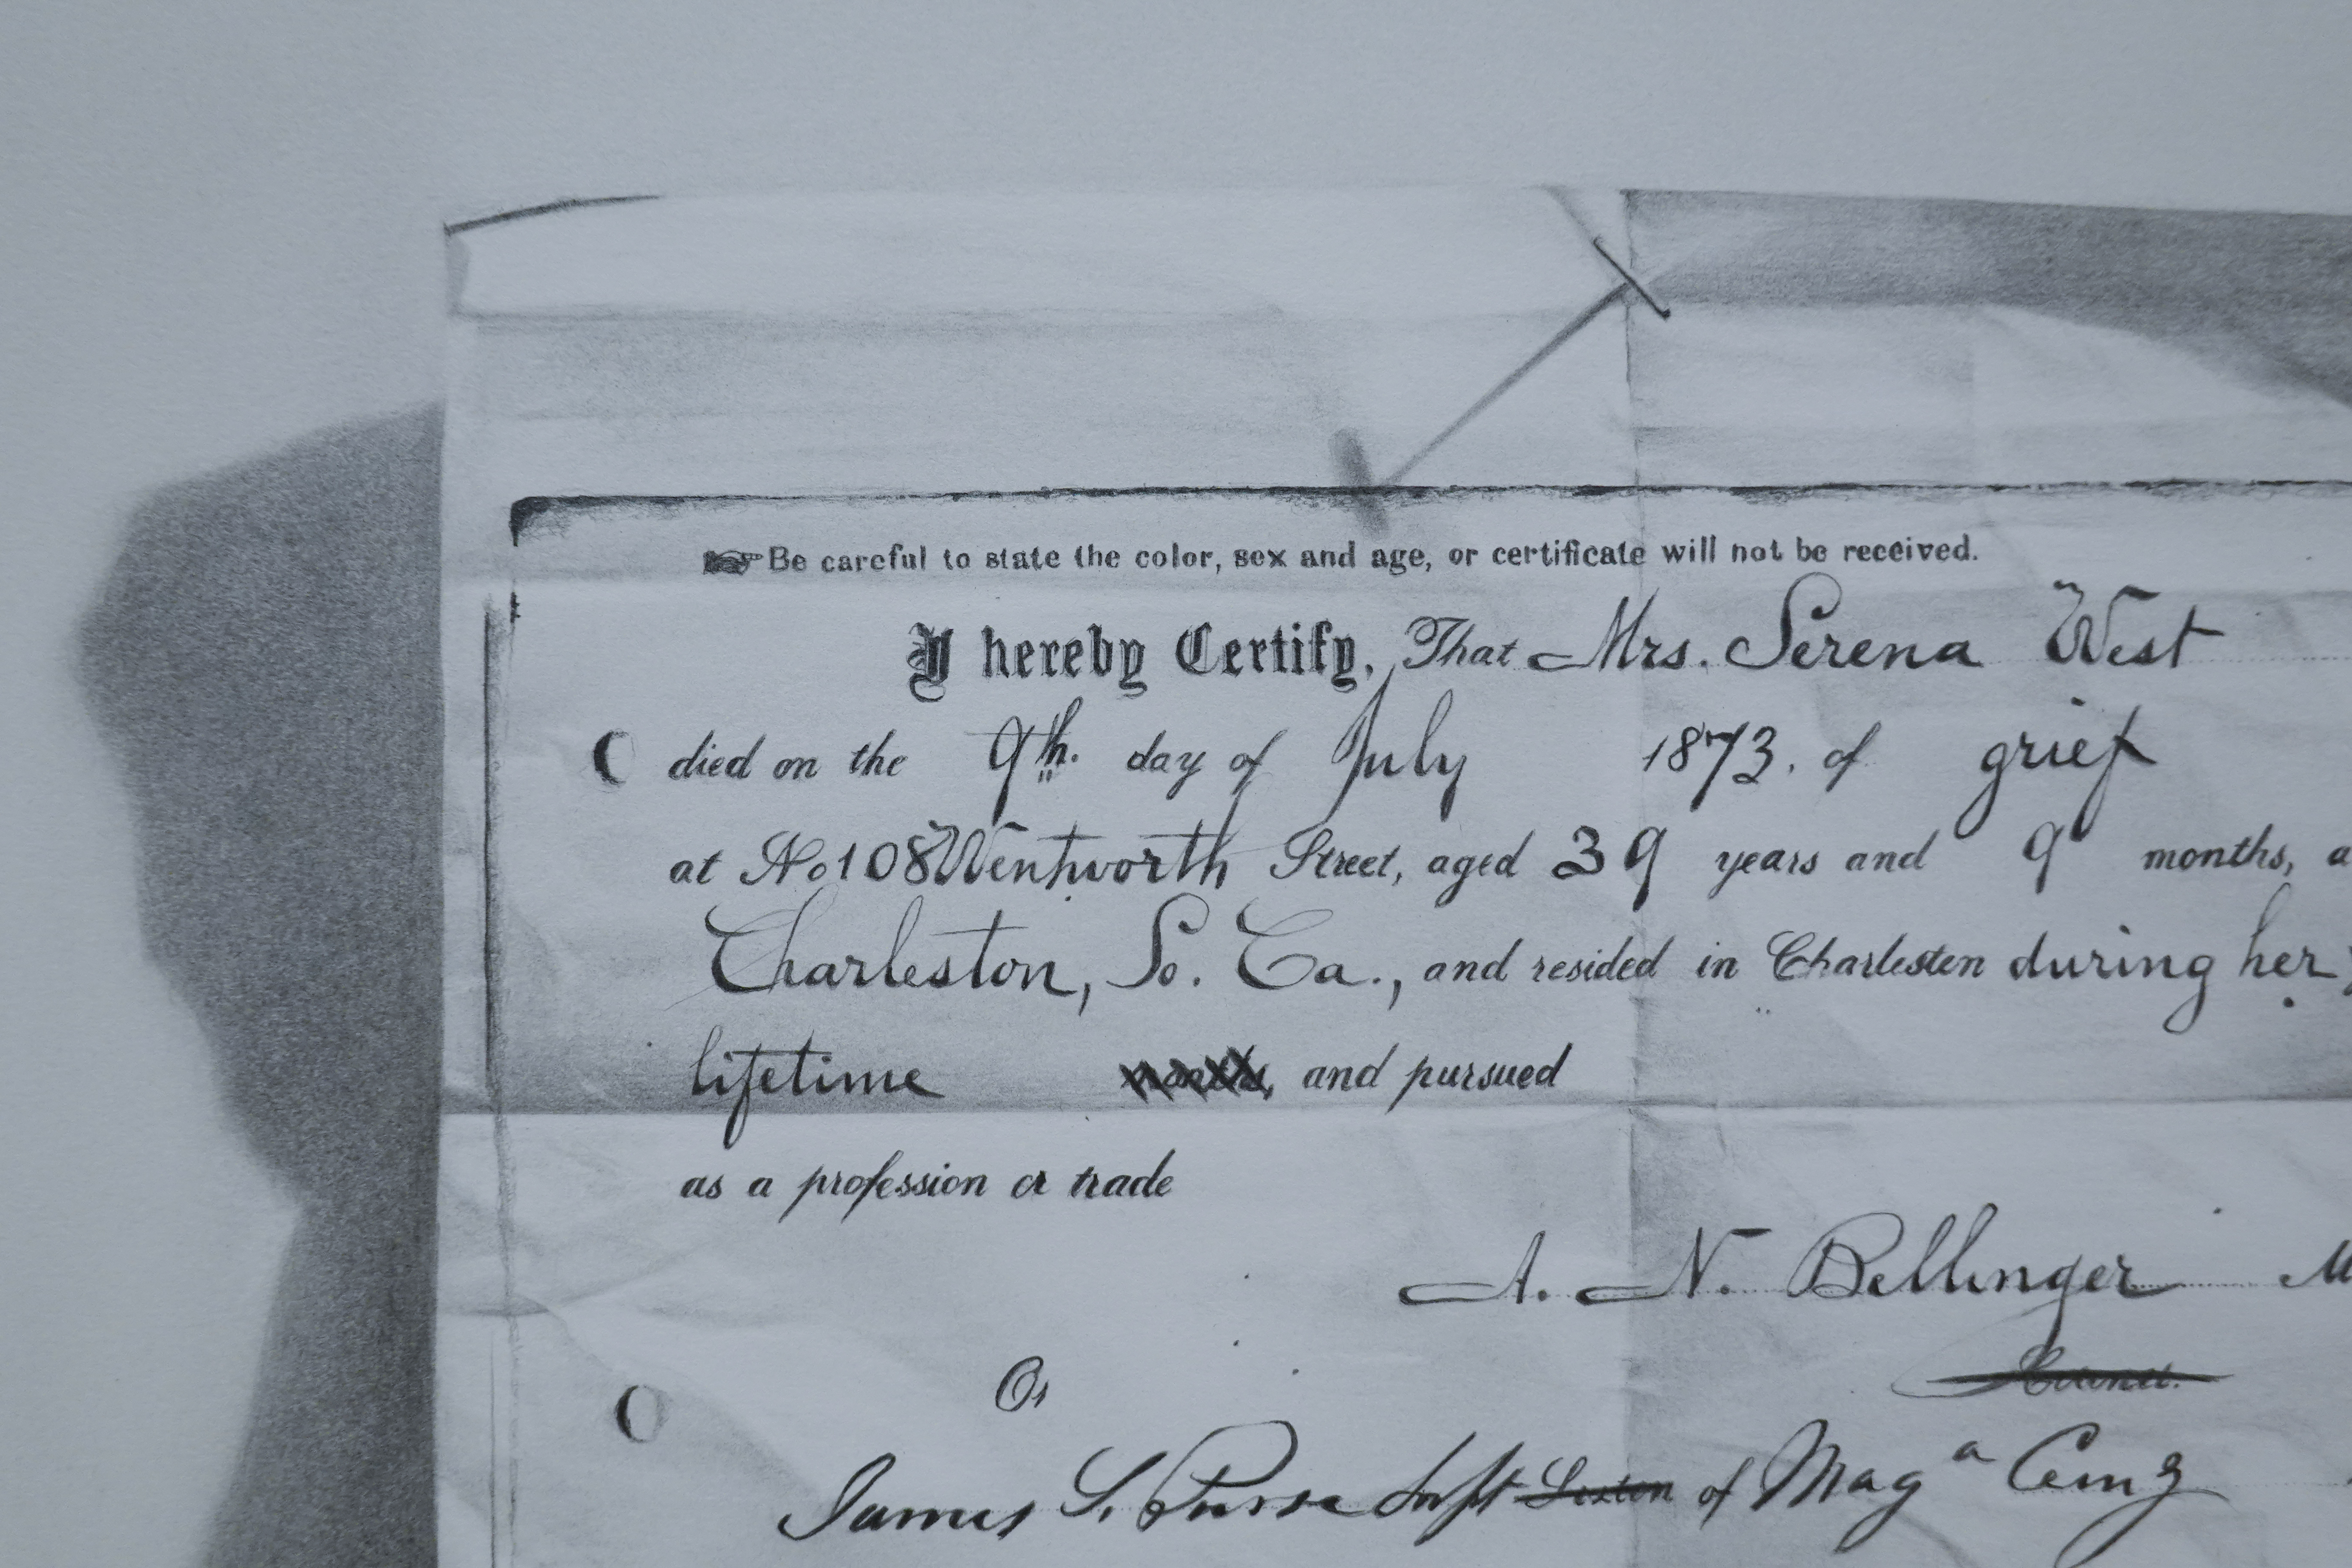 Be careful to state the color, sex and age, or certificate will not be received.
I hereby Certify, That Mrs. Serena West
died on the 9th. day of July 1873. of grief
at No 108 Wentworth Street, aged 39 years and 9 months, a
Charleston, So. Ca., and resided in Charleston during her
lifetime months, and pursued
as a profession or trade
A. N. Bellinger M
Or
James S. Supt Sexton of Mag a Cemy